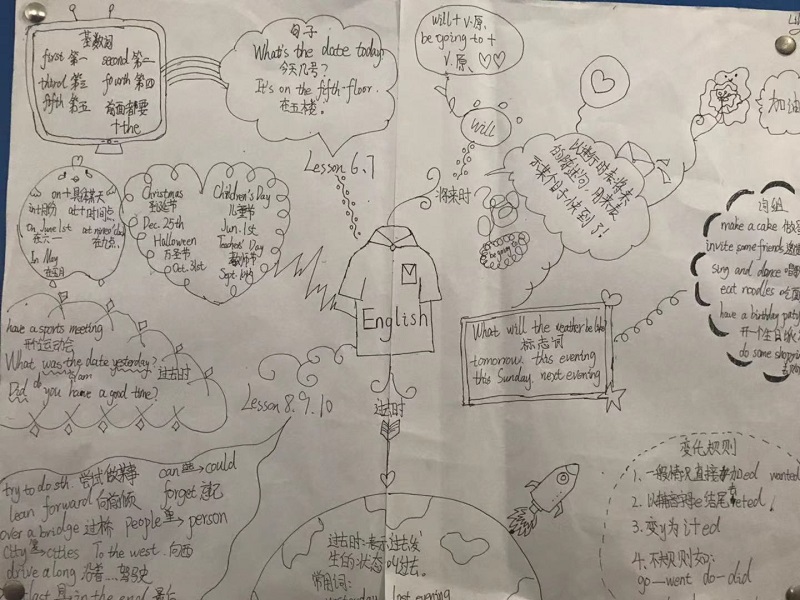 基数词
first 第一 second 第二
third 第三 fourth 第四
fifth 第五 前面都要
+the
句子
What's the date today
今天几号?
It's on the fifth-floor.
在五楼。
Lesson 6.7
will + V.原
be going to +
V.原
will
将来时
be going
以进行时表将来
示某个日子快到了!
加油
on+具体某天
in+月份 at+时间点
on June 1st
在六一
at nine o'day
在九点
In May
在五月
Christmas
圣诞节
Dec. 25th
Halloween
万圣节
Oct. 31st
Children's Day
儿童节
Jun. 1st
Teachers' Day
教师节
Sept. 10th
English
词组
make a cake
invite some friends
sing and dance
eat noodles
have a birthday party
开一个生日
do some shopping
What will the weather be like
标志词
tomorrow. this evening
this Sunday. next evening
have a sports meeting
开个运动会
What was the date yesterday?
过去时
Did you have a good time?
Lesson 8.9.10
过去时
try to do sth. 尝试做某事
can → could
lean forward 向前倾
forget 忘记
over a bridge 过桥
People → person
city → cities
To the west. 向西
drive along 沿着...驾驶
last in the end 最后
过去时:表示过去发
生的状态叫过去。
常用词:
yesterday last evening
变化规则
1. 一般情况直接加ed wanted
2. 以 e 结尾
3. 变y为i+ed
4. 不规则如:
go—went do-did